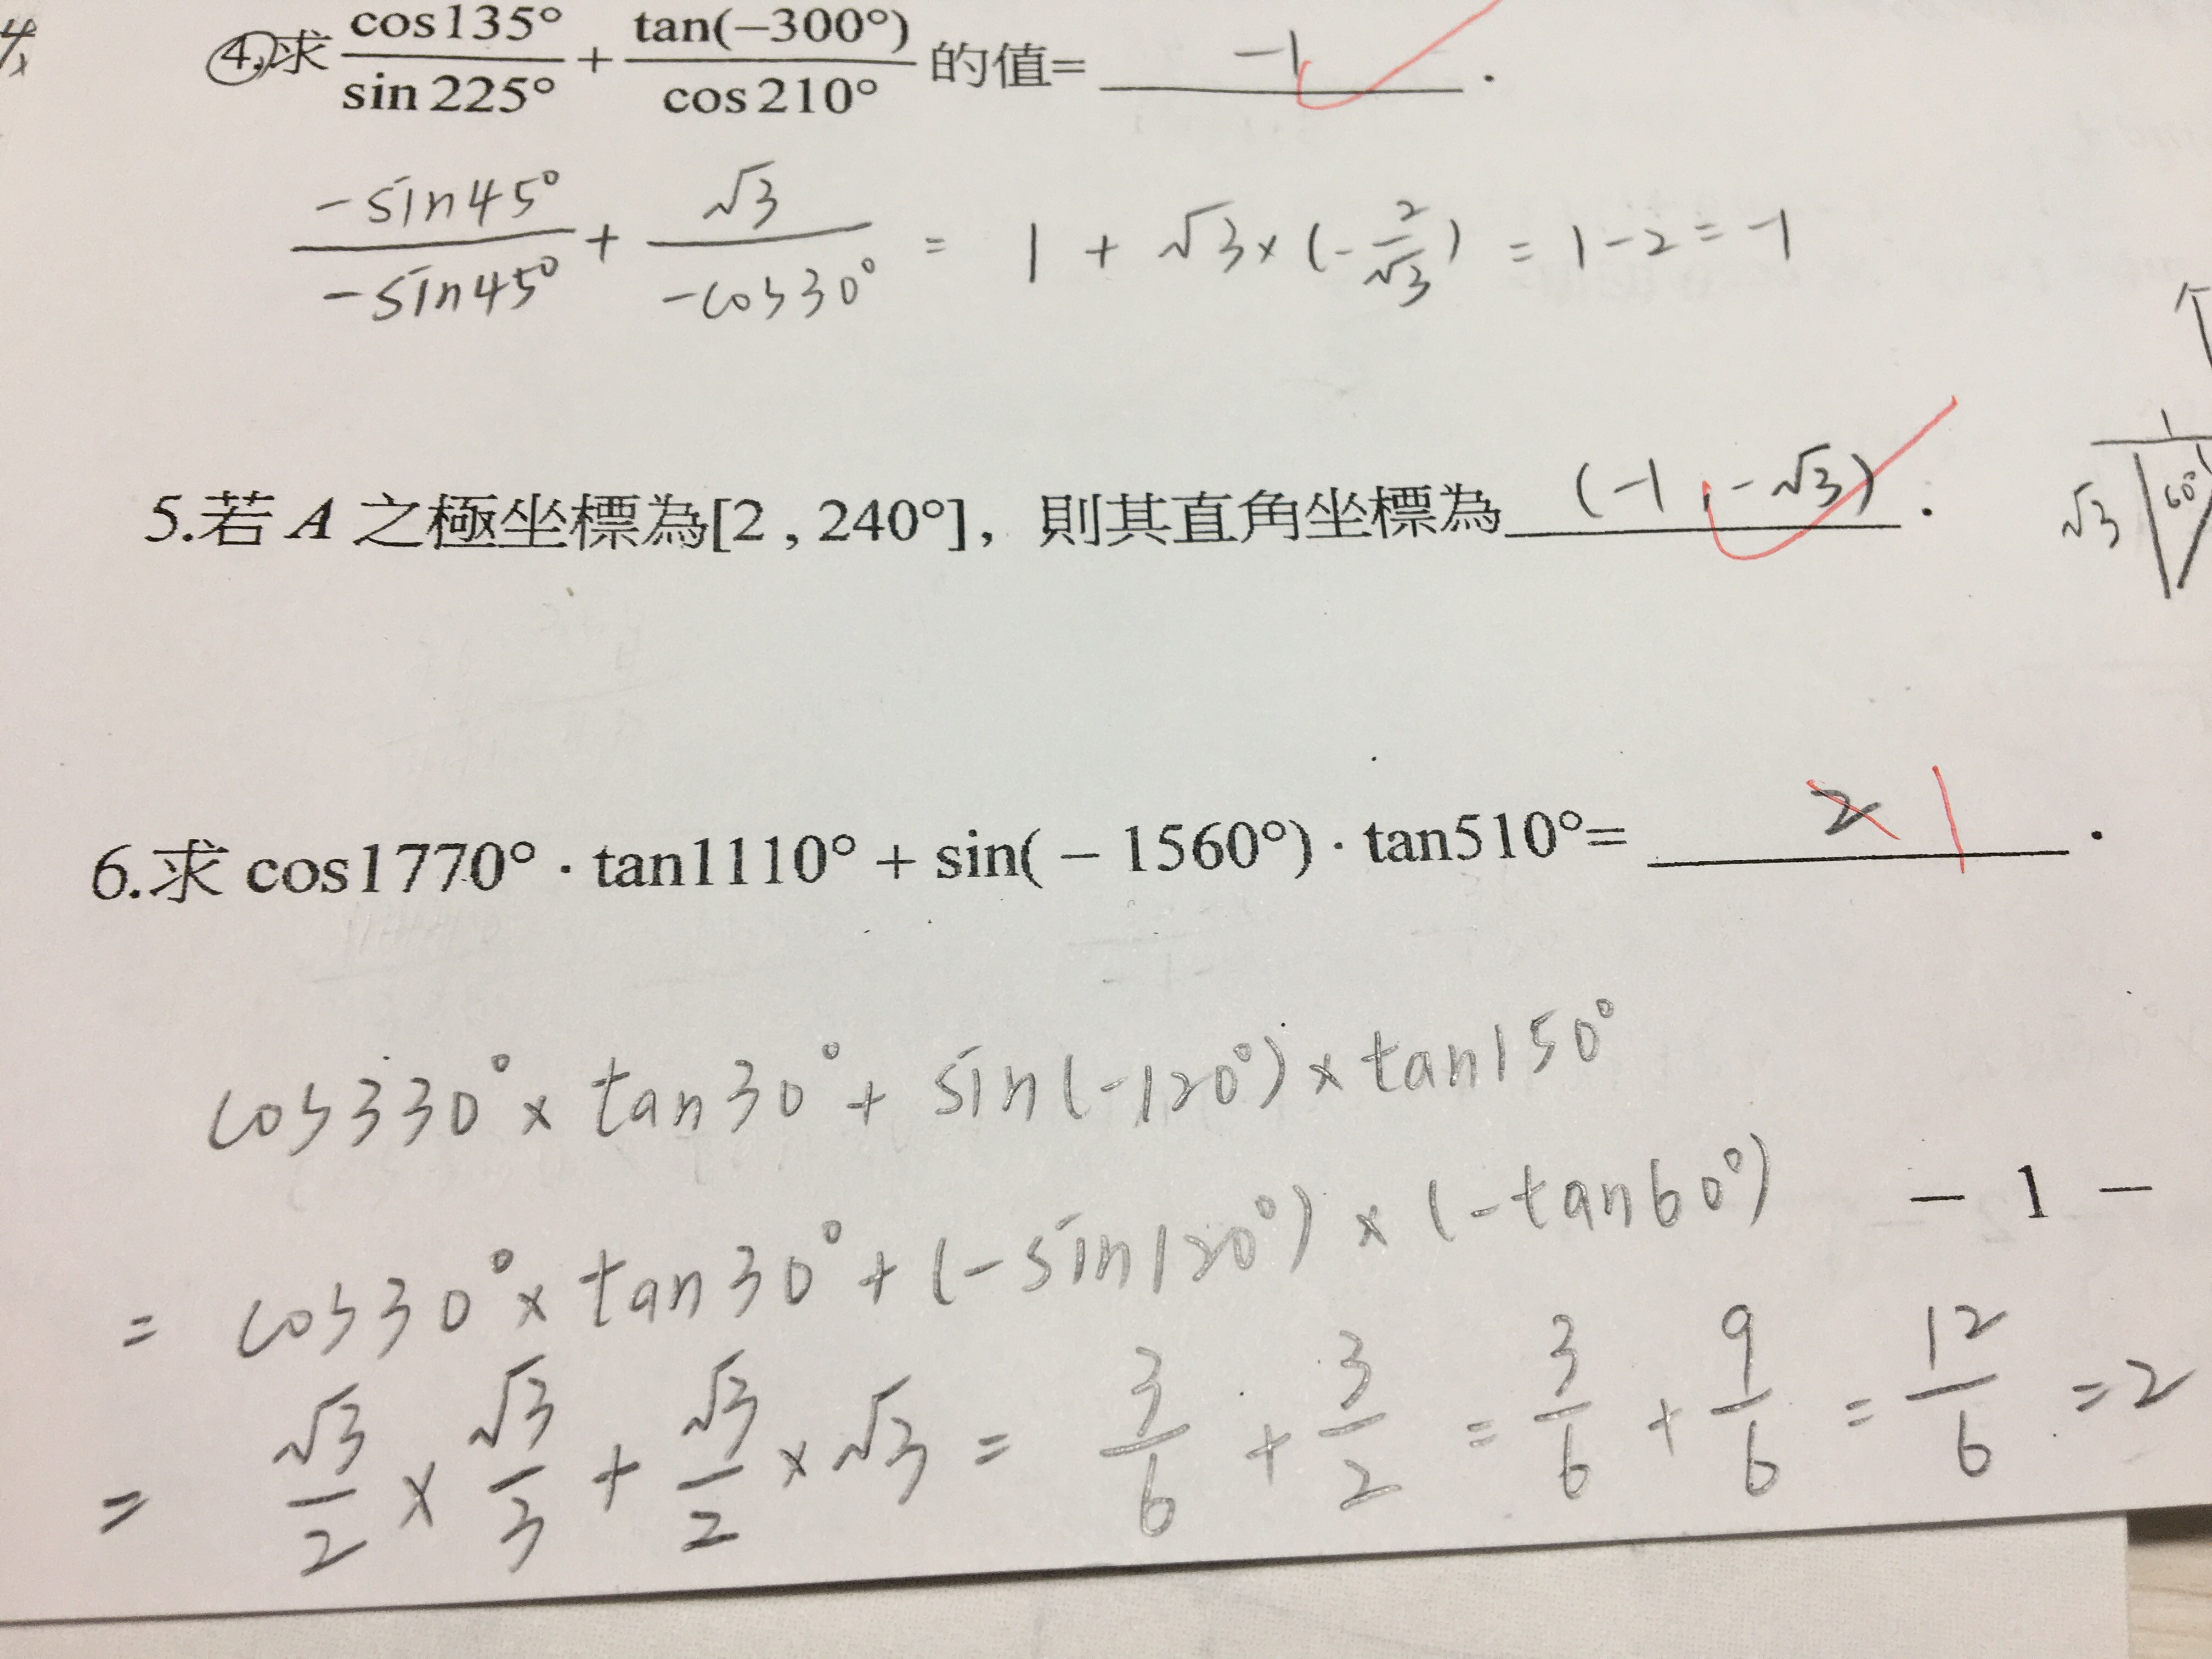 ④.求 cos135°/sin225° + tan(−300°)/cos210° 的值= −1 .
−sin45°/−sin45° + √3/−cos30° = 1 + √3×(−2/√3) = 1−2 = −1
5.若 A 之極坐標為[2 , 240°]，則其直角坐標為 (−1 , −√3) .
1
√3 60°
6.求 cos1770° · tan1110° + sin( − 1560°) · tan510°= 2 1 .
cos330° × tan30° + sin(−120°) × tan150°
= cos30° × tan30° + (−sin120°) × (−tan60°)
− 1 −
= √3/2 × √3/3 + √3/2 × √3 = 3/6 + 3/2 = 3/6 + 9/6 = 12/6 = 2